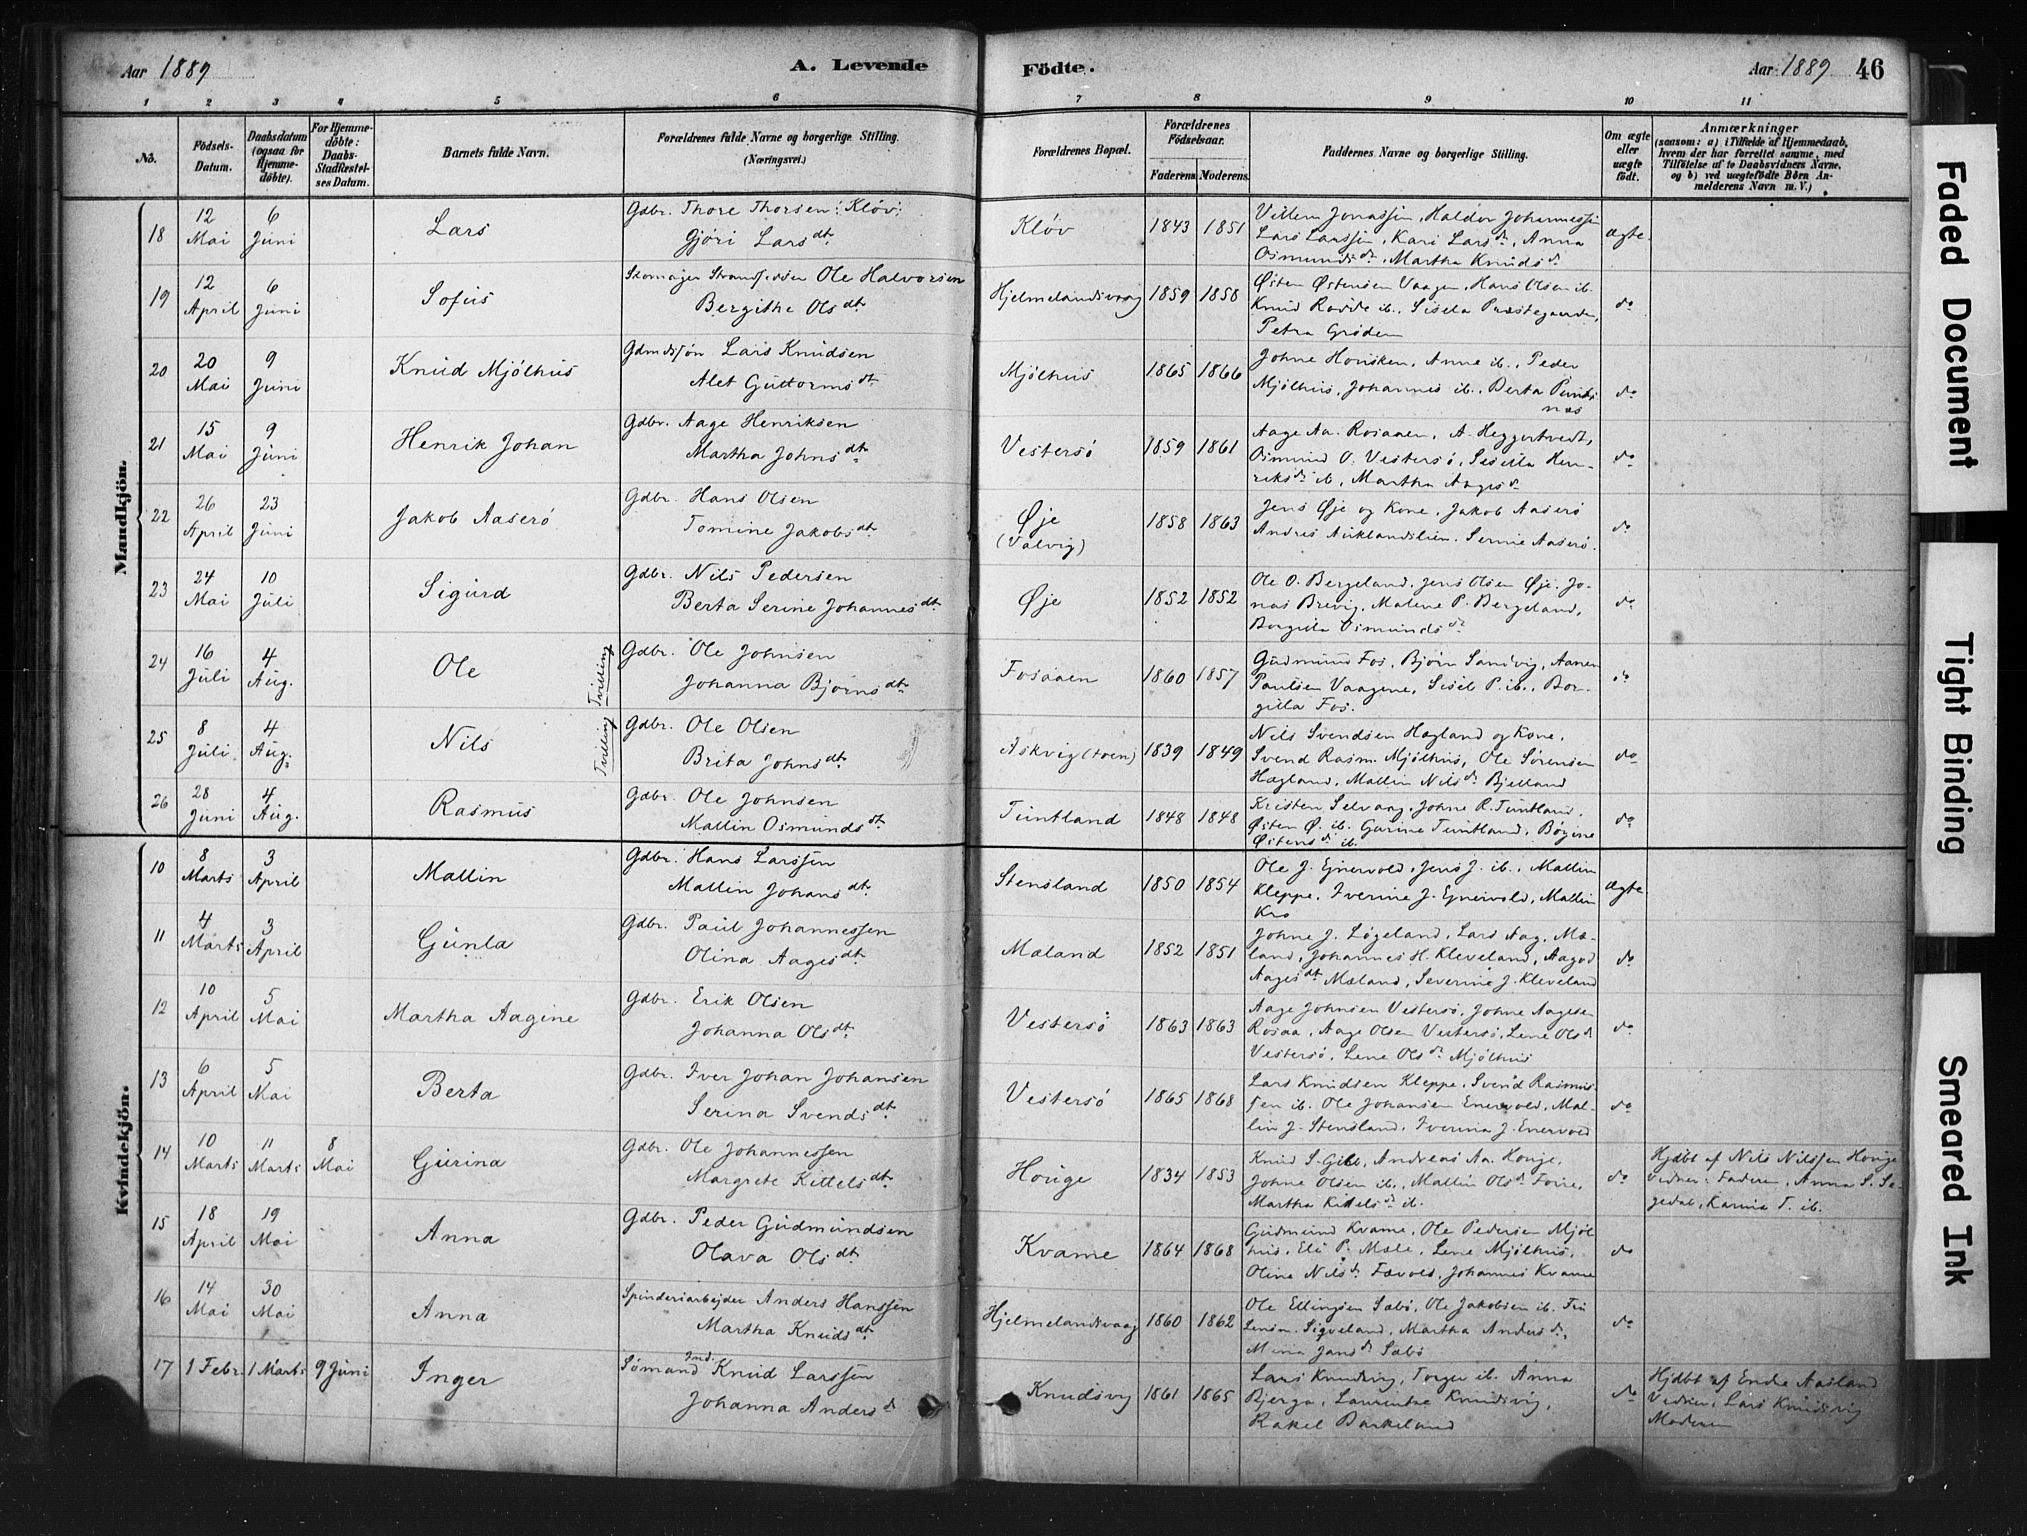 Aar 1889
A. Levende Födte.
Aar 1889 46
1 2 3 4 5 6 7 8 9 10 11
No.
Födsels-Datum.
Daabsdatum (ogsaa for Hjemmedöbte).
For Hjemmedöbte: Daabs-Stadfæstelses Datum.
Barnets fulde Navn.
Forældrenes fulde Navne og borgerlige Stilling. (Næringsvei.)
Forældrenes Bopæl.
Forældrenes Födselsaar.
Faderens Moderens
Faddernes Navne og borgerlige Stilling.
Om ægte eller uægte födt.
Anmærkninger
(saasom: a) i Tilfælde af Hjemmedaab, hvem der har forrettet samme, med Tilföielse af to Daabsvidners Navne, og b) ved uægtefödte Börn Anmelderens Navn m. V.)
Mandkjön.
18 12 Mai 6 Juni Lars Gdbr. Thore Thorsen Kløv
Gjøri Larsdt. Kløv 1843 1851 Villem Jonassen, Haldor Johannessen
Lars Larssen, Kari Larsd., Anna
Osmundsdt., Martha Knudsd. ægte
19 12 April 6 Juni Sofus Skomager Strandsidder Ole Halvorsen
Bergithe Olsdt. Hjelmelandsvaag 1859 1858 Østen Østensen Vaagen, Hans Olsen ib.
Knud Rødde ib., Sisela Præstegaarden,
Petra Grøden do
20 20 Mai 9 Juni Knud Mjølhus Gdmdssøn Lars Knudsen
Alet Guttormsdt. Mjølhus 1865 1866 Johne Hausken, Anne ib., Peder
Mjølhus, Johannes ib., Berta
næs do
21 15 Mai 9 Juni Henrik Johan Gdbr. Aage Henriksen
Martha Johnsdt. Vestersø 1859 1861 Aage Aa. Rosaaen, A. Heggertvedt,
Osmund O. Vestersø, Sisilla Hen-
riksd. ib, Martha Aagesd. do
22 26 April 23 Juni Jakob Aaserø Gdbr. Hans Olsen
Tomine Jakobsdt. Øje
(Valvig) 1858 1863 Jens Øje og Kone, Jakob Aaserø
Andres Auklandslien, Serine Aaserø. do
23 24 Mai 10 Juli Sigurd Gdbr. Nils Pedersen
Berta Serine Johannesdt. Øje 1852 1852 Ole O. Bergeland, Jens Olsen Øje, Jo-
nas Brevig, Malene P. Bergeland,
Borgilla Osmundsd. do
24 16 Juli 4 Aug. Ole Tvilling Gdbr. Ole Johnsen
Johanna Bjørnsdt. Fosaaen 1860 1857 Gudmund Fos, Bjørn Sandvig, Aanen
Paulsen Vaagene, Sisel P. ib., Bor-
gilla Fos. do
25 8 Juli 4 Aug. Nils Tvilling Gdbr. Ole Olsen
Brita Johnsdt. Askvig (toen) 1839 1849 Nils Svendsen Hægland og Kone,
Svend Rasm. Mjølhus, Ole Sørensen
Hægland, Mallin Nilsd. Bjelland do
26 28 Juni 4 Aug. Rasmus Gdbr. Ole Johnsen
Mallin Osmundsdt. Tuntland 1848 1848 Kristen Selvaag, Johne R. Tuntland,
Østen Ø. ib. Gurine Tuntland, Bøgine
Østensd. ib. do
Kvindekjön.
10 8 Marts 3 April Mallin Gdbr. Hans Larssen
Mallin Johansdt. Stensland 1850 1854 Ole J. Enervold, Jens J. ib., Mallin
Kleppe, Iverine J. Enervold, Mallin
Kro ægte
11 4 Marts 3 April Gunla Gdbr. Paul Johannessen
Olina Aagesdt. Mæland 1852 1851 Johne J. Løgeland, Lars Aag. Mæ-
land, Johannes H. Kleveland, Aagod
Aagesdt. Mæland, Severine J. Kleveland do
12 10 April 5 Mai Martha Aagine Gdbr. Erik Olsen
Johanna Olsdt. Vestersø 1863 1863 Aage Johnsen Vestersø, Johne Aagesen
Rosaa, Aage Olsen Vestersø, Lene Olsd.
Vestersø, Lene Olsd. Mjølhus do
13 6 April 5 Mai Berta Gdbr. Iver Johan Johansen
Serina Svendsdt. Vestersø 1865 1868 Lars Knudsen Kleppe, Svend Rasmus-
sen ib. Ole Johansen Enervold, Mal-
lin J. Stensland, Iverina J. Enervold do
14 10 Marts 11 Marts 8 Mai Gurina Gdbr. Ole Johannessen
Margrete Kittelsdt. Houge 1834 1853 Knud S. Gilt, Andreas Aa. Houge,
Johne Olsen ib., Mallin Olsd. Foire,
Martha Kittelsd. ib. do Hjdbt af Nils Nilssen Houge
Vidner: Faderen, Anna S. Se-
gedal, Karina T. ib.
15 18 April 19 Mai Anna Gdbr. Peder Gudmundsen
Olava Olsdt. Kvame 1864 1868 Gudmund Kvame, Ole Pedersen Mjøl-
hus, Eli P. Mæle, Lene Mjølhus,
Oline Nilsd. Fævold, Johannes Kvame do
16 14 Mai 30 Mai Anna Spinderiarbejder Anders Hanssen
Martha Knudsdt. Hjelmelandsvaag 1860 1862 Ole Ellingsen Sæbø, Ole Jakobsen ib. Fru
Lensm. Sigveland, Martha Andersd.,
Mina Jansd. Sæbø do
17 1 Febr. 1 Marts 9 Juni Inger Sømand Ind. Knud Larssen
Johanna Andersd. Knudsvig 1861 1865 Lars Knudsvig, Torger ib. Anna
Bjerga, Laurentse Knudsvig,
Rakel Barkeland do Hjdbt af Endre Aasland
Vidner, Lars Knudsvig
Moderen
Faded Document
Tight Binding
Smeared Ink